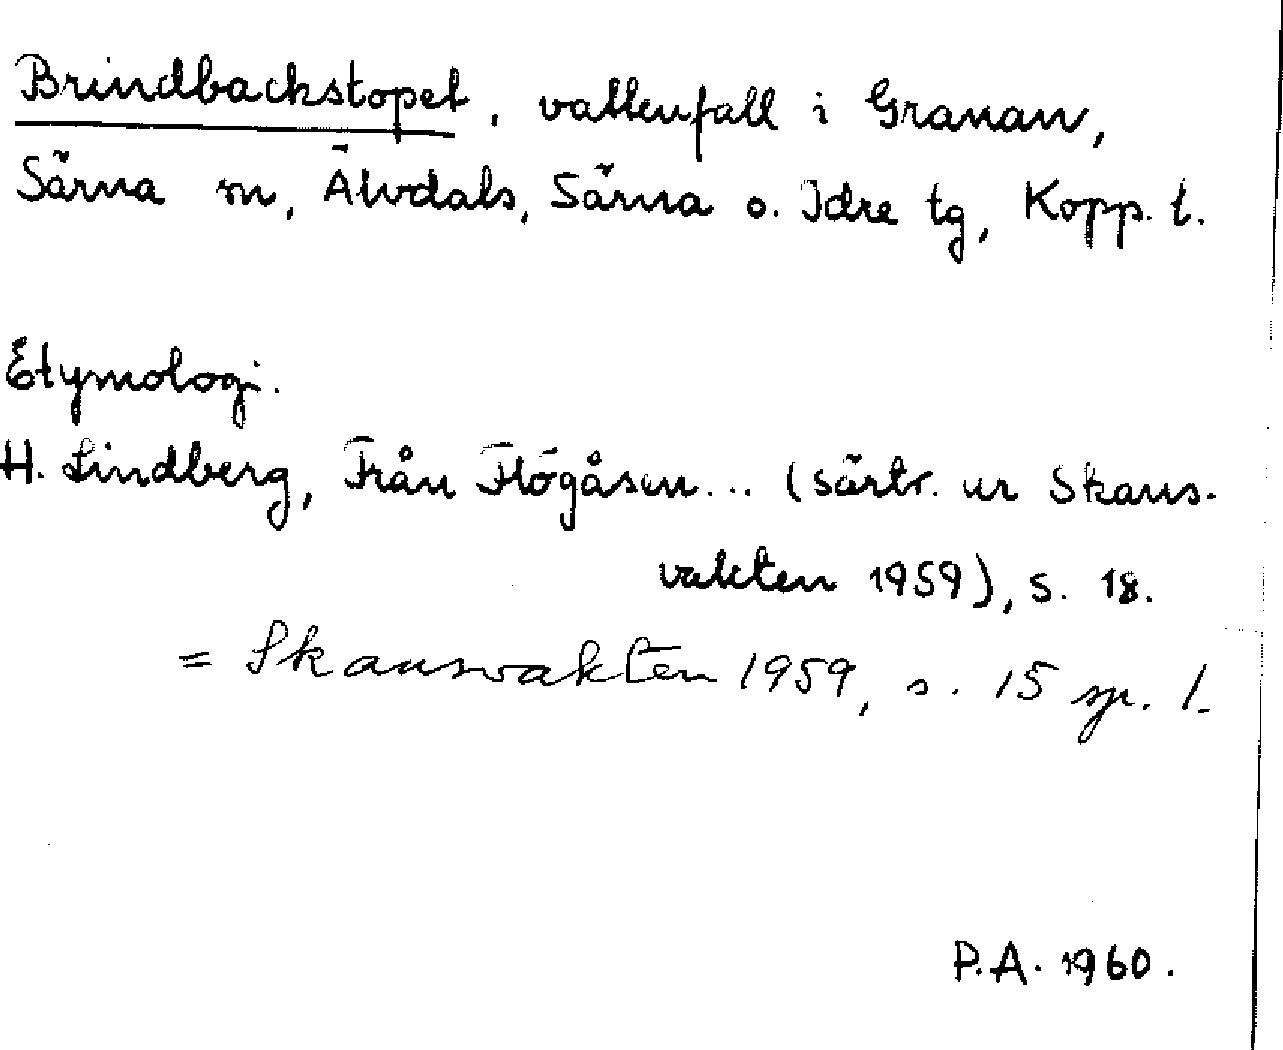 Brindbackstopet, vattenfall i Granan,
Särna sn, Älvdals, Särna o. Idre tg, Kopp. l.
Etymologi.
H. Lindberg, Från Flögåsen... (särtr. ur Skans-
vakten 1959), s. 18.
= Skansvakten 1959, s. 15 sp. 1.
P.A. 1960.